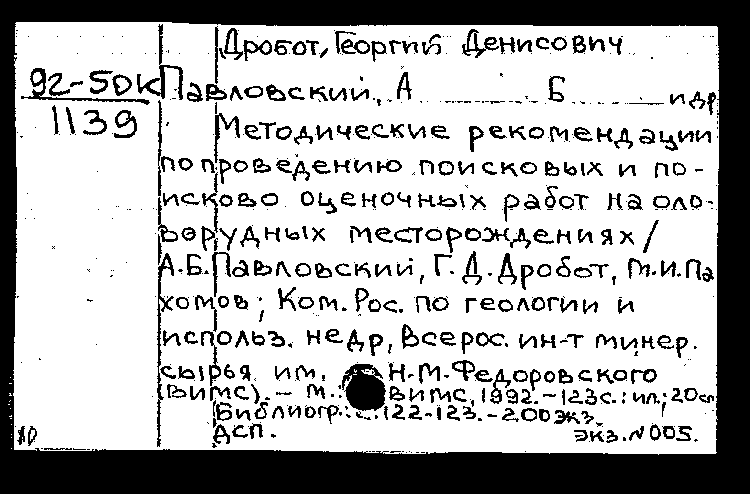 Дробот, Георгий Денисович
92-5ДК Павловский, А Б и др
1139 Методические рекомендации
по проведению поисковых и по-
исково оценочных работ на оло-
ворудных месторождениях/
А.Б. Павловский, Г.Д. Дробот, М.И. Па
хомов; Ком. Рос. по геологии и
использ. недр, Всерос. ин-т минер.
сырья им. Н.М. Федоровского
(ВИМС). – М.: ВИМС, 1992. – 123с.: ил.; 20см
Библиогр.: с. 122-123. – 200экз.
ДСП. экз. N 005.